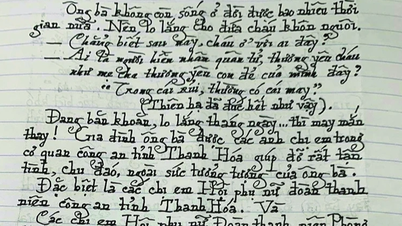 Ông bà không còn sống ở đời được bao nhiêu thời
gian nữa. Nên lo lắng cho đứa cháu khôn nguôi.
— Chẳng biết sau này, cháu ở với ai đây?
— Ai là người hiền nhân quân tử, thương yêu cháu
như mẹ cha thương yêu con đẻ của mình đây?
"Trong cái rủi, thường có cái may"
Thiên hạ đã đúc kết như vậy).
Đang băn khoăn, lo lắng tháng ngày... thì may mắn
thay! Gia đình ông bà được các anh chị em trong
cơ quan công an tỉnh Thanh Hóa giúp đỡ rất tận
tình, chu đáo, ngoài sức tưởng tượng của ông bà.
Đặc biệt là các chị em Hội phụ nữ đoàn thanh
niên công an tỉnh Thanh Hóa. Và
Các chị em Hội phụ nữ Đoàn thanh niên Phòng